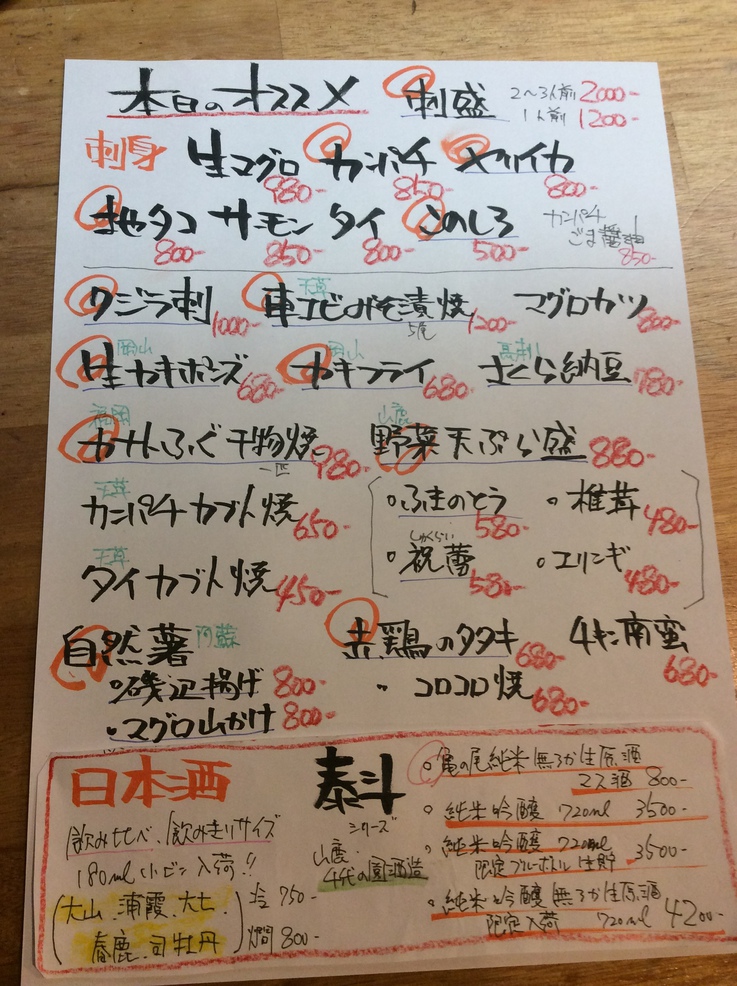 本日のオススメ 刺盛 2〜3人前 2000-
1人前 1200-
刺身 生マグロ 980- カンパチ 850- ヤリイカ 800-
地ダコ 800- サーモン 850- タイ 800- このしろ 500- カンパチごま醤油 850-
クジラ刺 1000- 天草 車エビみそ漬焼 1200- マグロカツ 800-
岡山 生カキポンズ 680- 岡山 カキフライ 680- さくら納豆 780-
福岡 カナトふぐ干物焼 一匹 980- 山鹿 野菜天ぷら盛 880-
天草 カンパチカブト焼 650- ・ふきのとう 580- ・椎茸 480-
天草 タイカブト焼 450- ・祝蕾 しゅくらい 580- ・エリンギ 480-
自然薯 阿蘇 赤鶏のタタキ 680- チキン南蛮 680-
・磯辺揚げ 800- ・コロコロ焼 680-
・マグロ山かけ 800-
日本酒
飲み比べ、飲み走りサイズ
180ml 小ビン入荷!!
(大山、浦霞、大七、
春鹿、司牡丹)
750-
燗 800-
泰斗
シリーズ
山鹿
千代の園酒造
・亀の尾純米無ろか生原酒
マス酒 800-
・純米吟醸 720ml 3500-
・純米吟醸 720ml
限定ブルーボトル生貯 3500-
・純米吟醸 無ろか生原酒
限定入荷 720ml 4200-